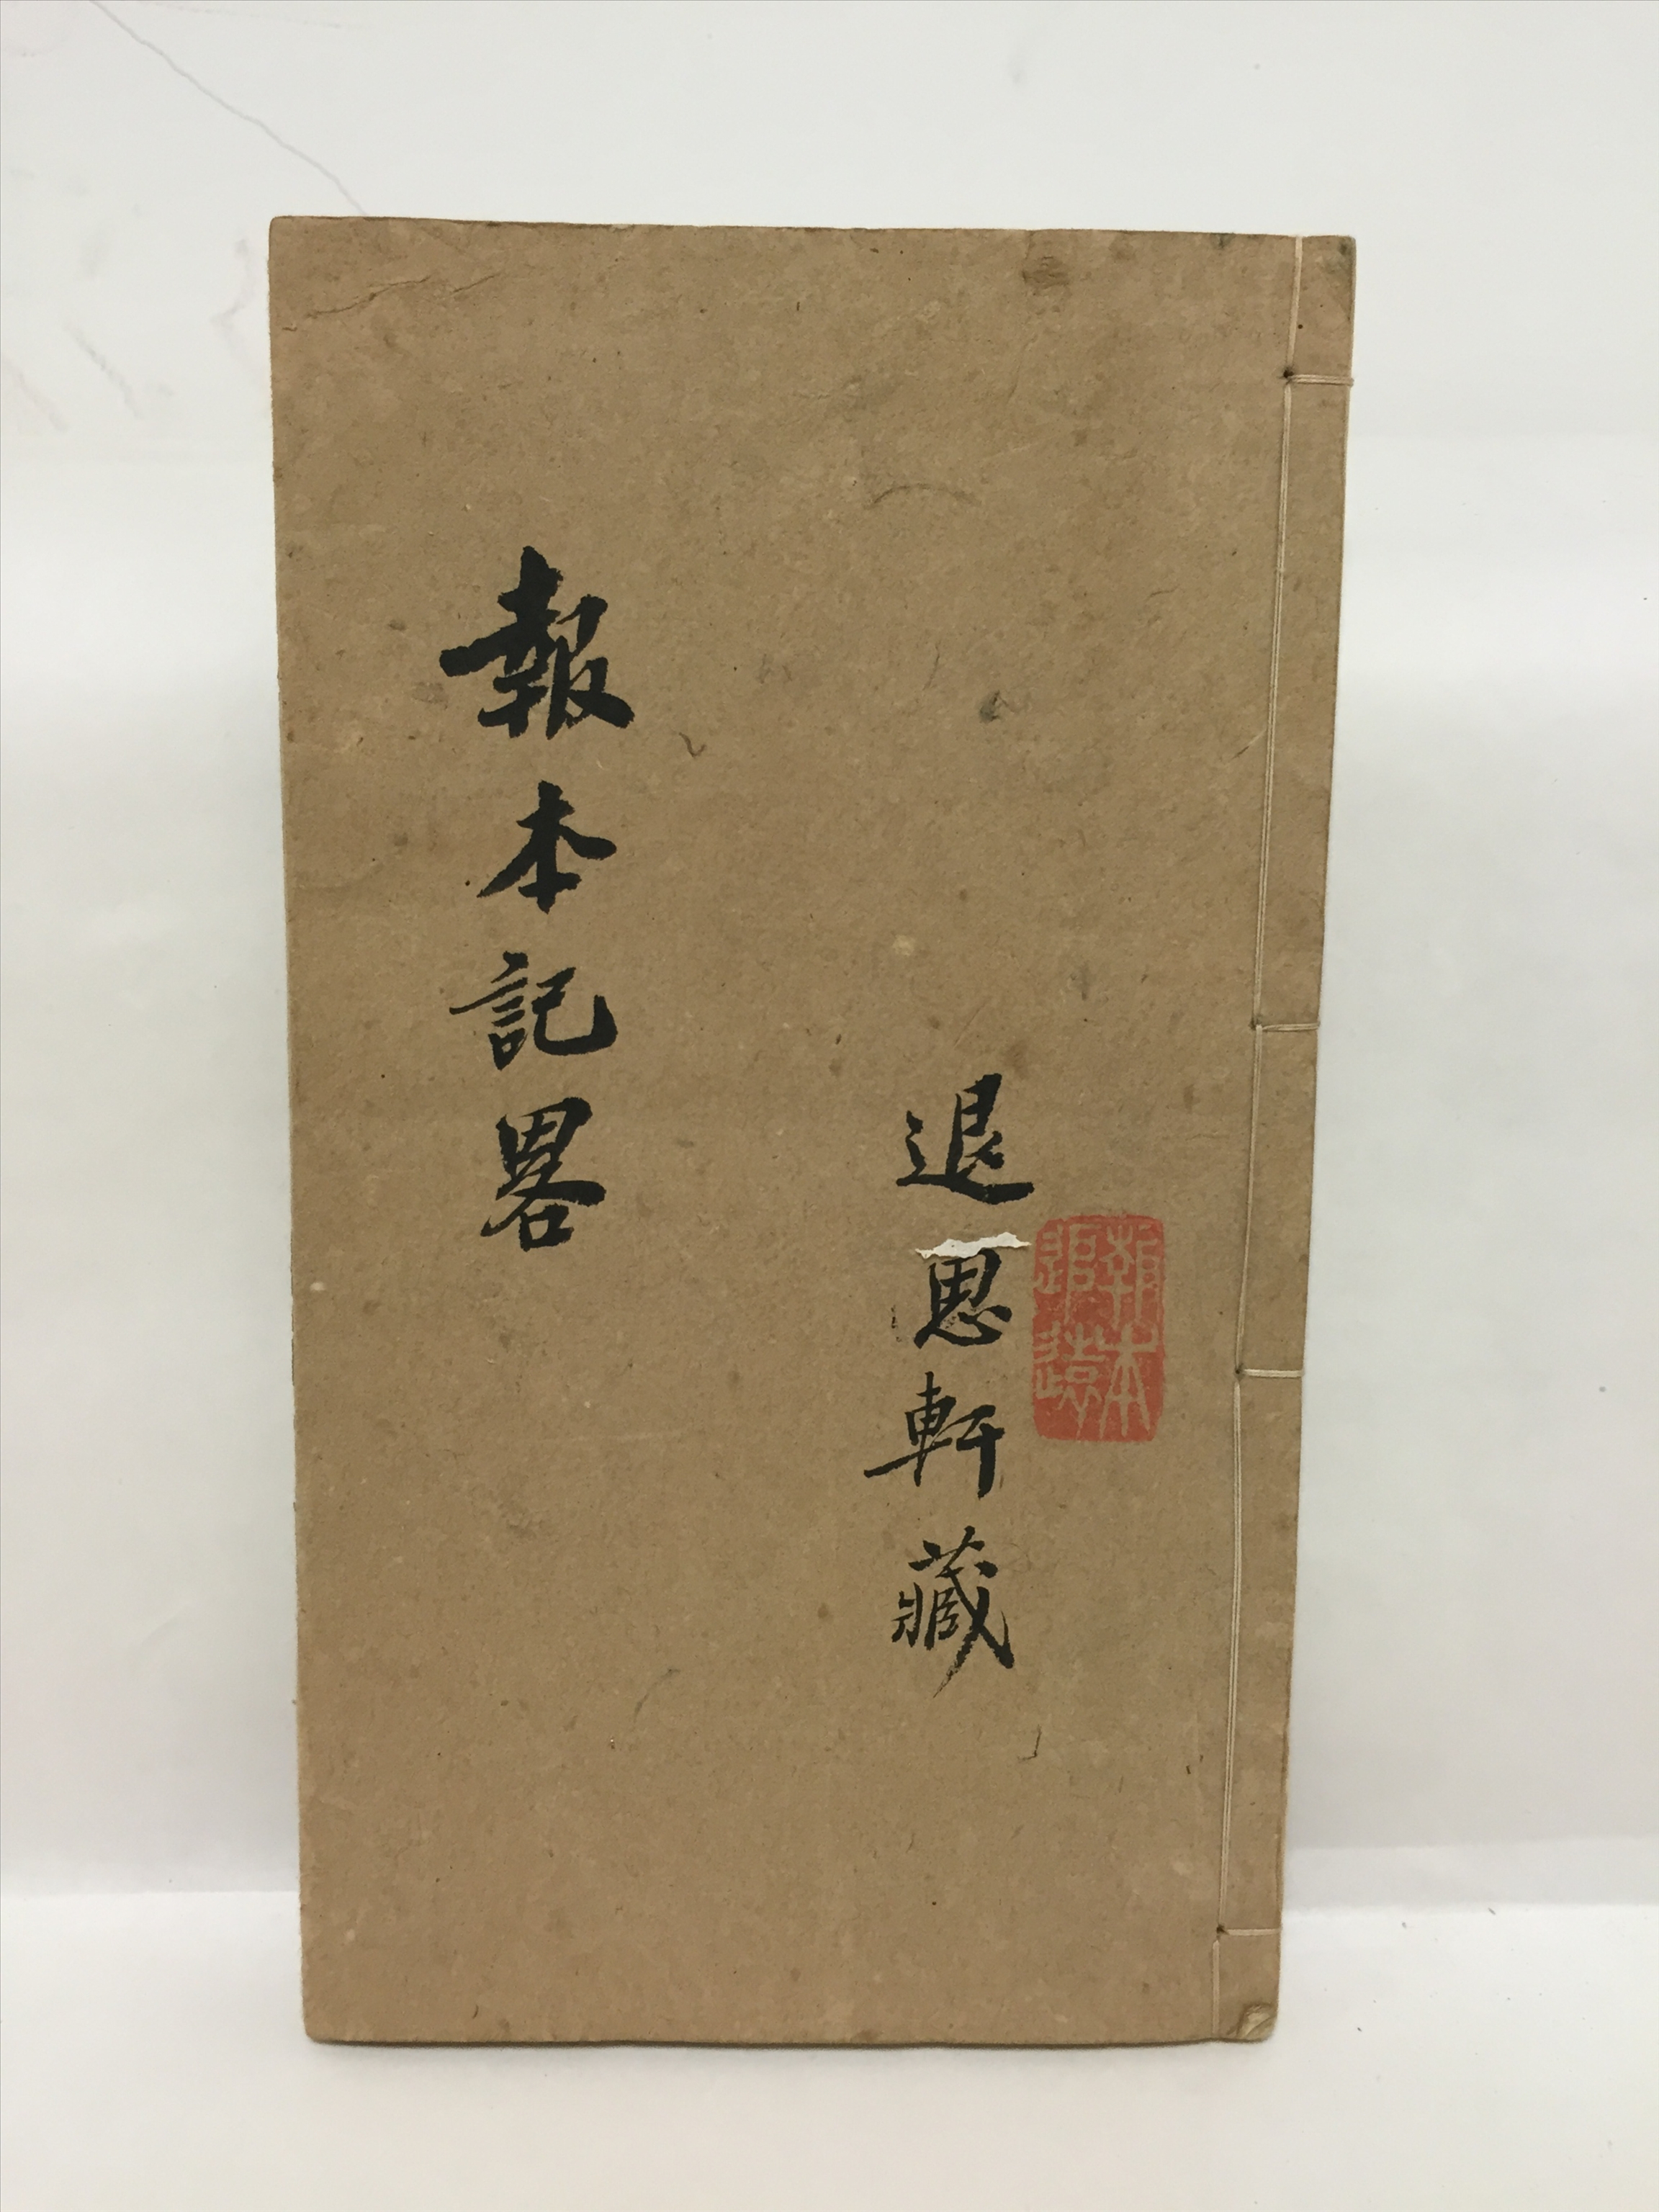 報本
追遠
退思軒藏
報本記畧